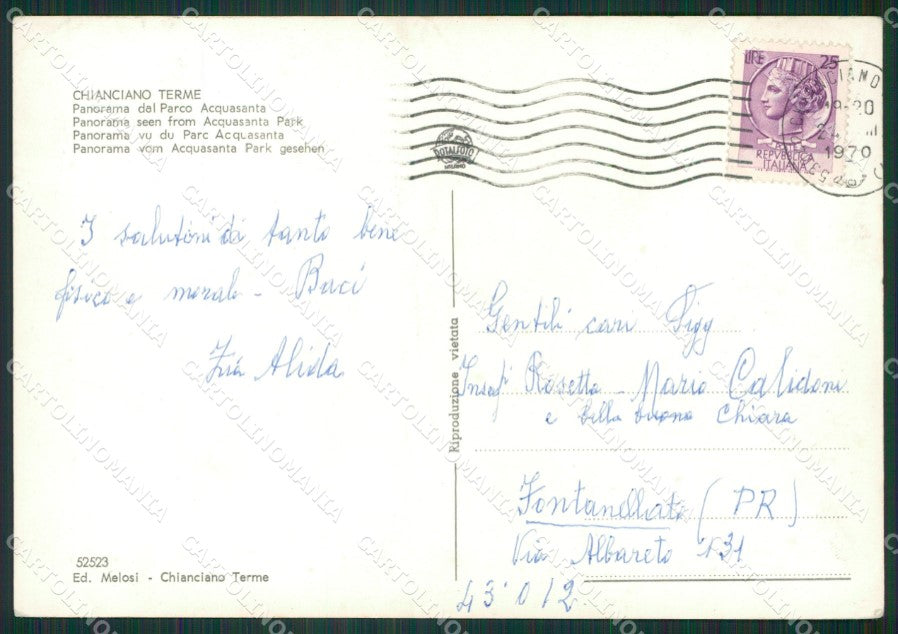 CHIANCIANO TERME
Panorama dal Parco Acquasanta
Panorama seen from Acquasanta Park
Panorama vu du Parc Acquasanta
Panorama vom Acquasanta Park gesehen
I salutini di tanto bene
fisico e morale - Baci
Zia Alida
52523
Ed. Melosi - Chianciano Terme
Riproduzione vietata
ROTALFOTO
MILANO
LIRE 25
REPVBBLICA
ITALIANA
19-20
1970
Gentili cari Sigg
Rosetta - Mario Calidoni
e bella buona Chiara
Fontanellato (PR)
Via Albareto 131
43012
CARTOLINOMANIA